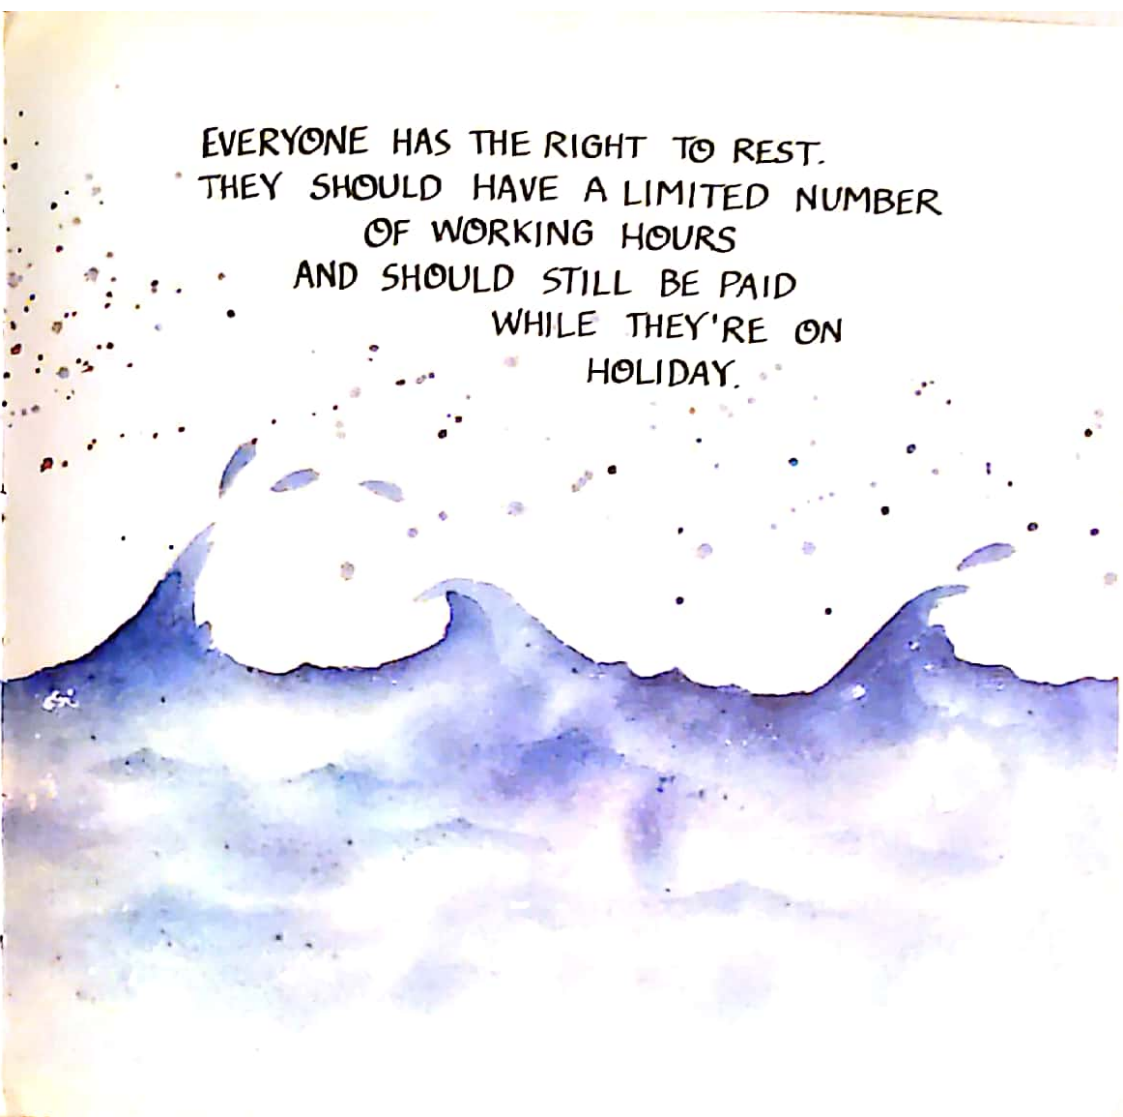 EVERYONE HAS THE RIGHT TO REST.
THEY SHOULD HAVE A LIMITED NUMBER
OF WORKING HOURS
AND SHOULD STILL BE PAID
WHILE THEY'RE ON
HOLIDAY.